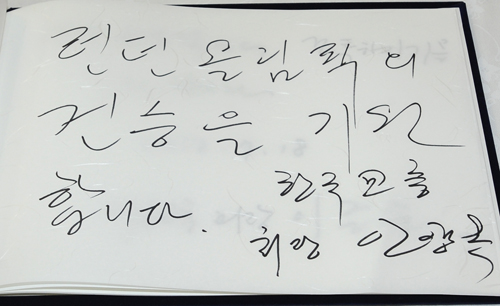 런던 올림픽의
건승을 기원
합니다.
한국교총
회장 안양옥